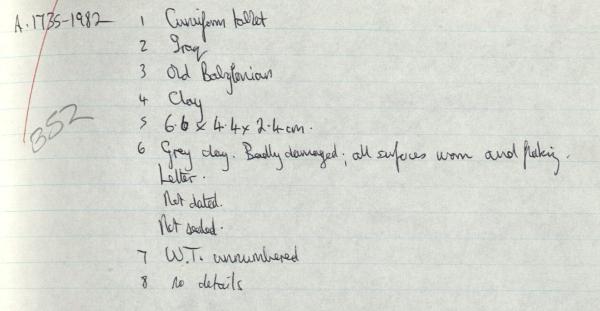 A.1735-1982
1 Cuneiform tablet
2 Iraq
3 Old Babylonian
4 Clay
5 6.6 x 4.4 x 2.4 cm.
6 Grey clay. Badly damaged; all surfaces worn and flaking.
Letter.
Not dated.
Not sealed.
7 W.T. unnumbered
8 no details
352